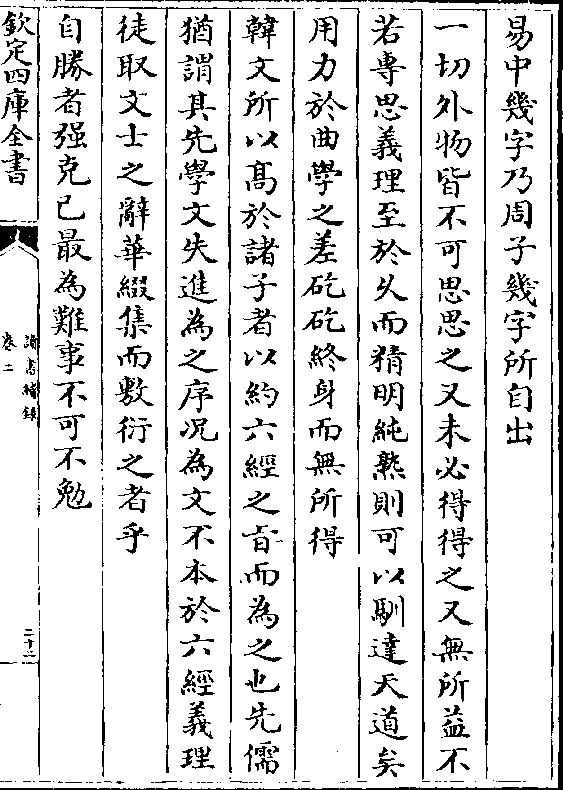 易中幾字乃周子幾字所自出
一切外物皆不可思思之又未必得得之又無所益不
若專思義理至於久而精明純熟則可以馴達天道矣
用力於曲學之差矻矻終身而無所得
韓文所以髙於諸子者以約六經之㫖而為之也先儒
猶謂其先學文失進為之序况為文不本於六經義理
徒取文士之辭華綴集而敷衍之者乎
自勝者强克己最為難事不可不勉
欽定四庫全書
讀書續録
卷二
二十二